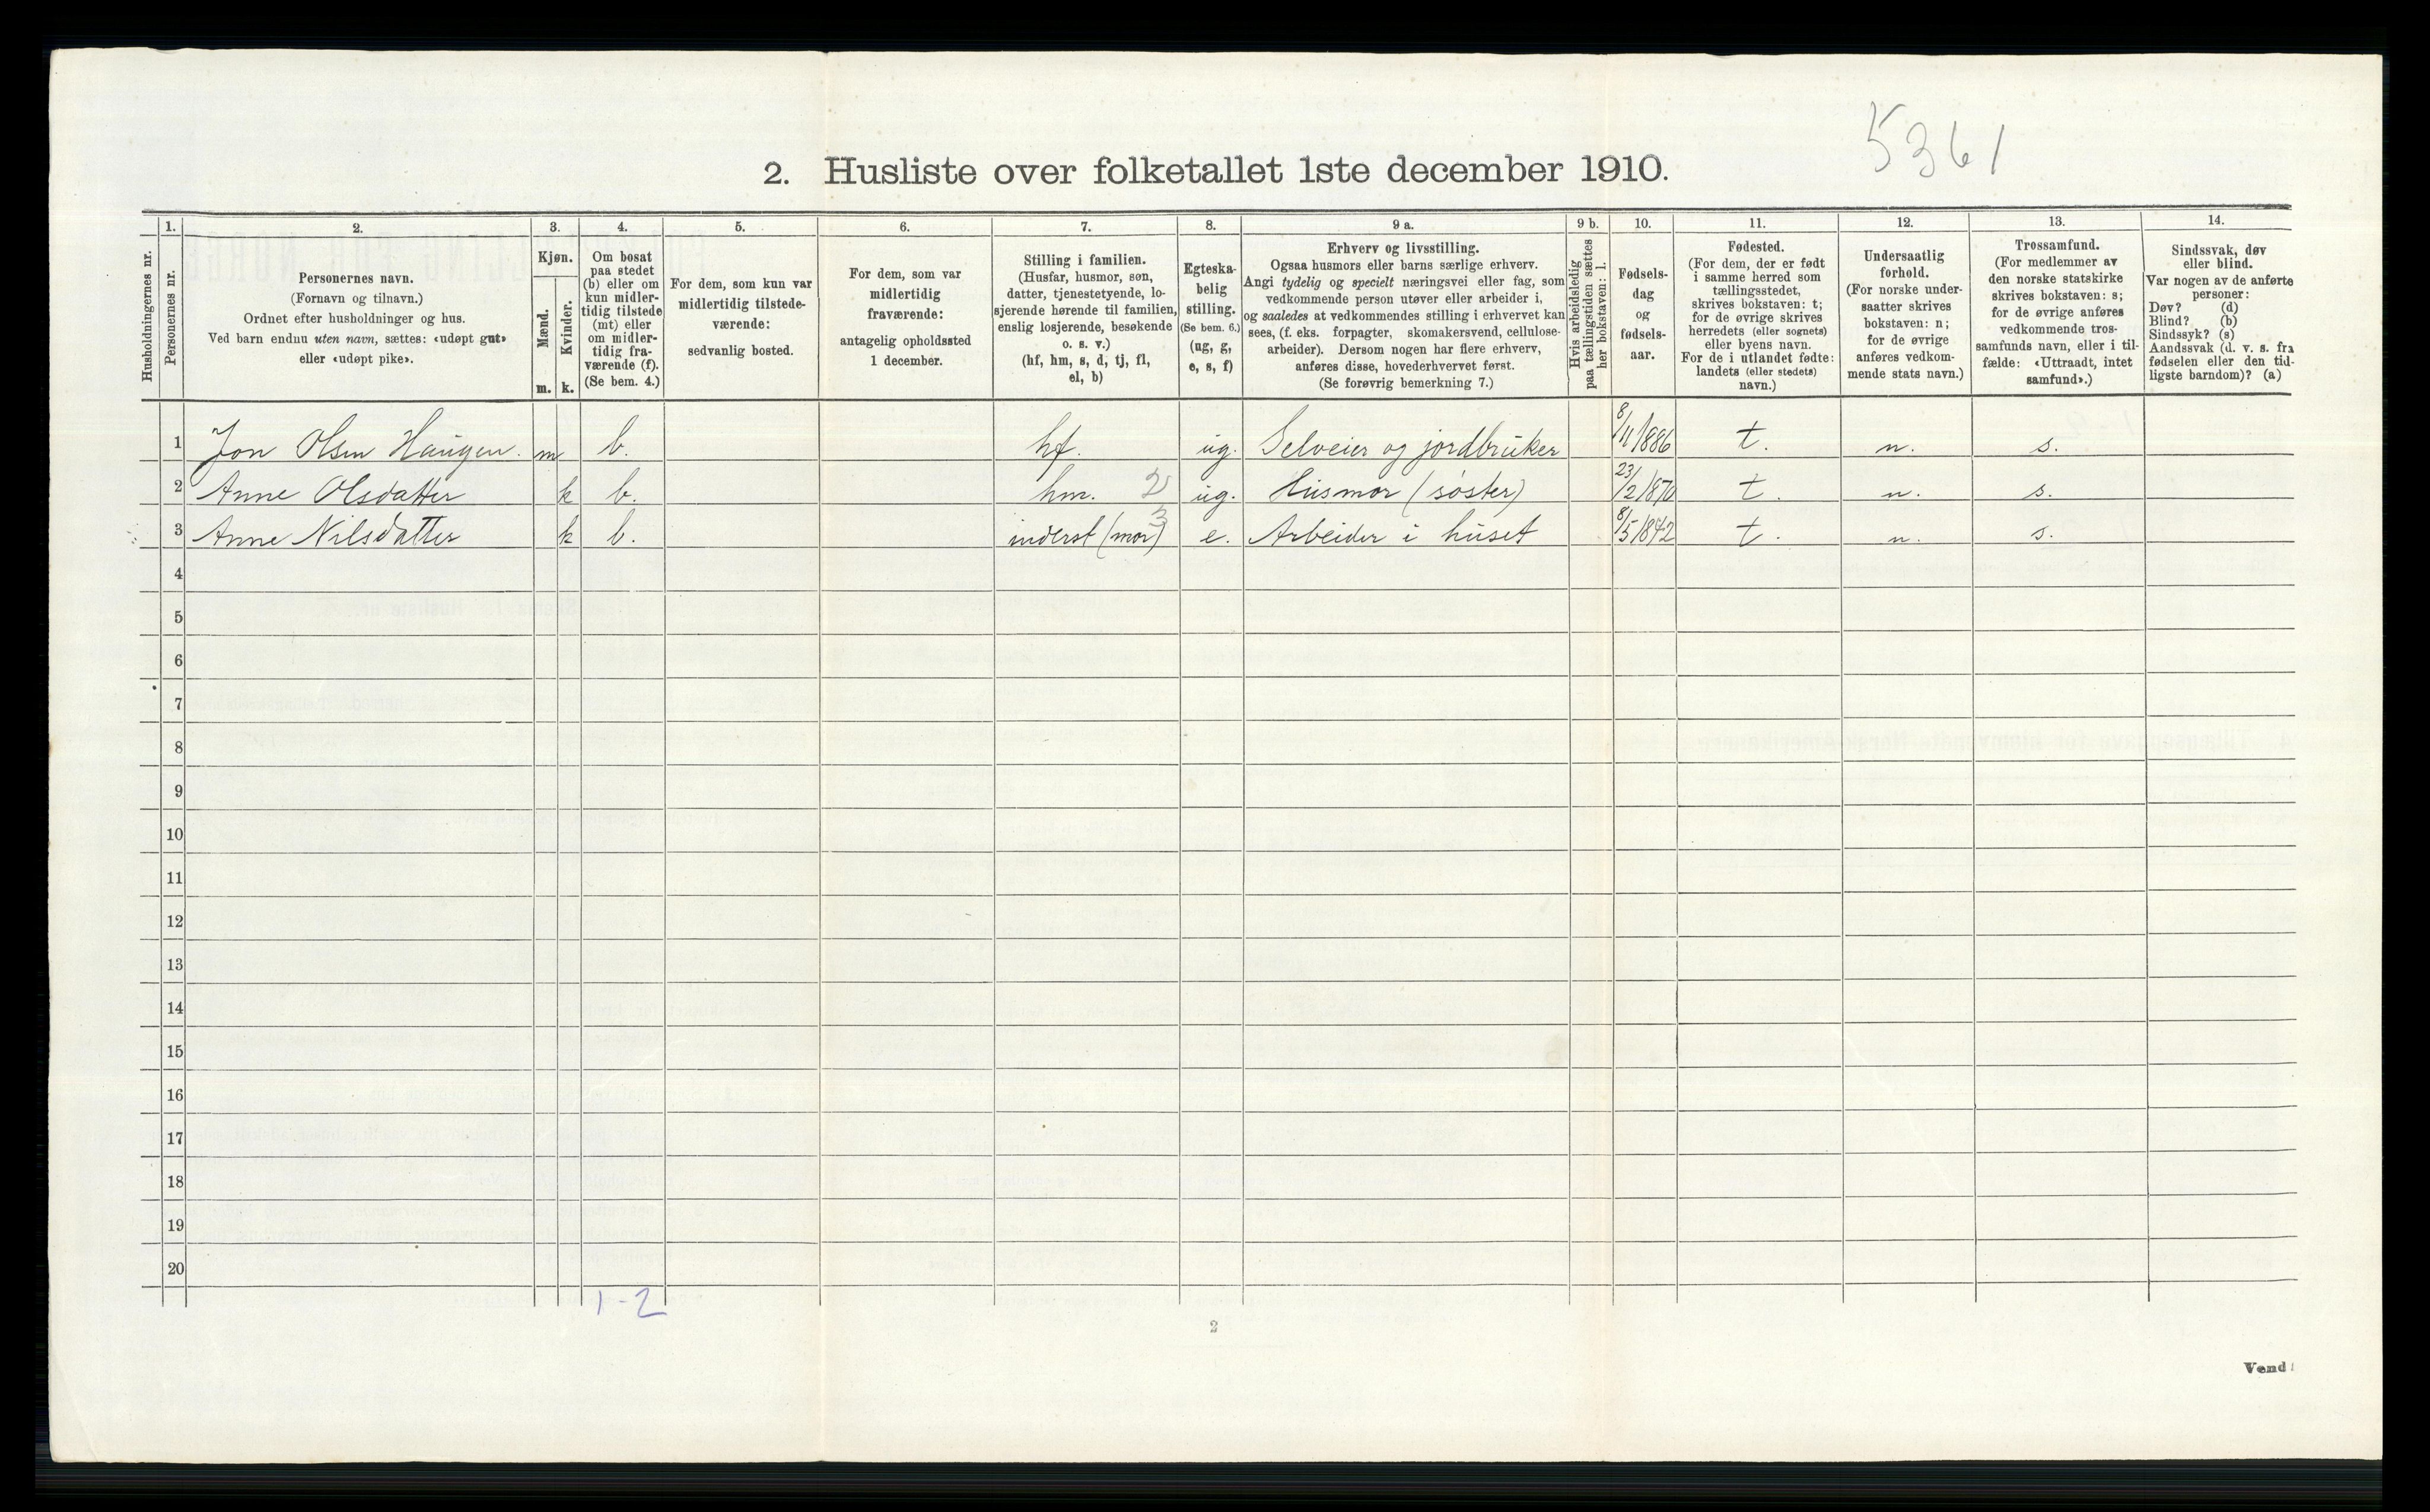 5361
2. Husliste over folketallet 1ste december 1910.
Husholdningernes nr.
1.
Personernes nr.
2.
Personernes navn.
(Fornavn og tilnavn.)
Ordnet efter husholdninger og hus.
Ved barn endnu uten navn, sættes: «udøpt gut»
eller «udøpt pike».
3.
Kjøn.
Mænd.
m.
Kvinder.
k.
4.
Om bosat
paa stedet
(b) eller om
kun midler-
tidig tilstede
(mt) eller
om midler-
tidig fra-
værende (f).
(Se bem. 4.)
5.
For dem, som kun var
midlertidig tilstede-
værende:
sedvanlig bosted.
6.
For dem, som var
midlertidig
fraværende:
antagelig opholdssted
1 december.
7.
Stilling i familien.
(Husfar, husmor, søn,
datter, tjenestetyende, lo-
sjerende hørende til familien,
enslig losjerende, besøkende
o. s. v.)
(hf, hm, s, d, tj, fl,
el, b)
8.
Egteska-
belig
stilling.
(Se bem. 6.)
(ug, g,
e, s, f)
9 a.
Erhverv og livsstilling.
Ogsaa husmors eller barns særlige erhverv.
Angi tydelig og specielt næringsvei eller fag, som
vedkommende person utøver eller arbeider i,
og saaledes at vedkommendes stilling i erhvervet kan
sees, (f. eks. forpagter, skomakersvend, cellulose-
arbeider). Dersom nogen har flere erhverv,
anføres disse, hovederhvervet først.
(Se forøvrig bemerkning 7.)
9 b.
Hvis arbeidsledig
paa tællingstiden sættes
her bokstaven: l.
10.
Fødsels-
dag
og
fødsels-
aar.
11.
Fødested.
(For dem, der er født
i samme herred som
tællingsstedet,
skrives bokstaven: t;
for de øvrige skrives
herredets (eller sognets)
eller byens navn.
For de i utlandet fødte:
landets (eller stedets)
navn.)
12.
Undersaatlig
forhold.
(For norske under-
saatter skrives
bokstaven: n;
for de øvrige
anføres vedkom-
mende stats navn.)
13.
Trossamfund.
(For medlemmer av
den norske statskirke
skrives bokstaven: s;
for de øvrige anføres
vedkommende tros-
samfunds navn, eller i til-
fælde: «Uttraadt, intet
samfund».)
14.
Sindssvak, døv
eller blind.
Var nogen av de anførte
personer:
Døv? (d)
Blind? (b)
Sindssyk? (s)
Aandssvak (d. v. s. fra
fødselen eller den tid-
ligste barndom)? (a)
1 Jon Olsen Haugen. m b. hf. ug. Selveier og jordbruker 8/11/886 t. n. s.
2 Anne Olsdatter k b. hm. 2 ug. Husmor (søster) 23/2/870 t. n. s.
3 Anne Nilsdatter k b. inderst (mor) 3 e. Arbeider i huset 8/5/842 t. n. s.
4
5
6
7
8
9
10
11
12
13
14
15
16
17
18
19
20
1-2
2
Vend!